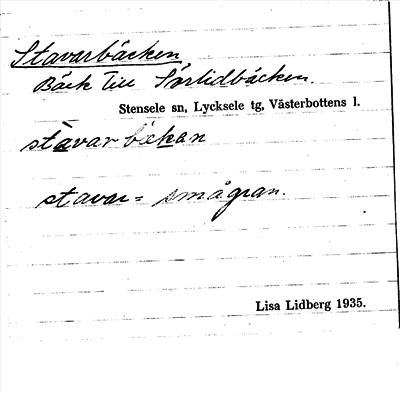 Stavarbäcken
Bäck till Sörlidbäcken.
Stensele sn, Lycksele tg, Västerbottens l.
stàvarbäkan
stavar = smågran.
Lisa Lidberg 1935.